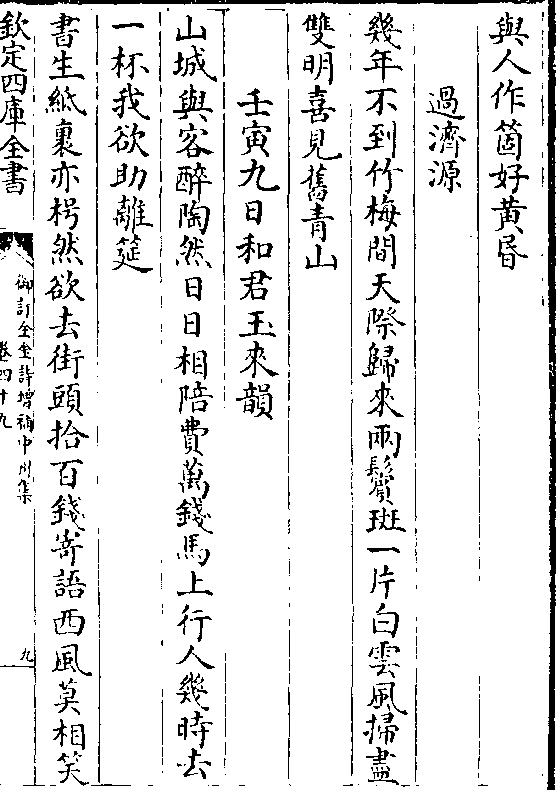 與人作箇好黄昏
過濟源
幾年不到竹梅間天際歸來兩鬢斑一片白雲風掃盡
雙明喜見舊青山
壬寅九日和君玉來韻
山城與客醉陶然日日相陪費萬錢馬上行人幾時去
一杯我欲助離筵
書生紙裏亦枵然欲去街頭拾百錢寄語西風莫相笑
欽定四庫全書
御訂全金詩增補中州集
卷四十九
九